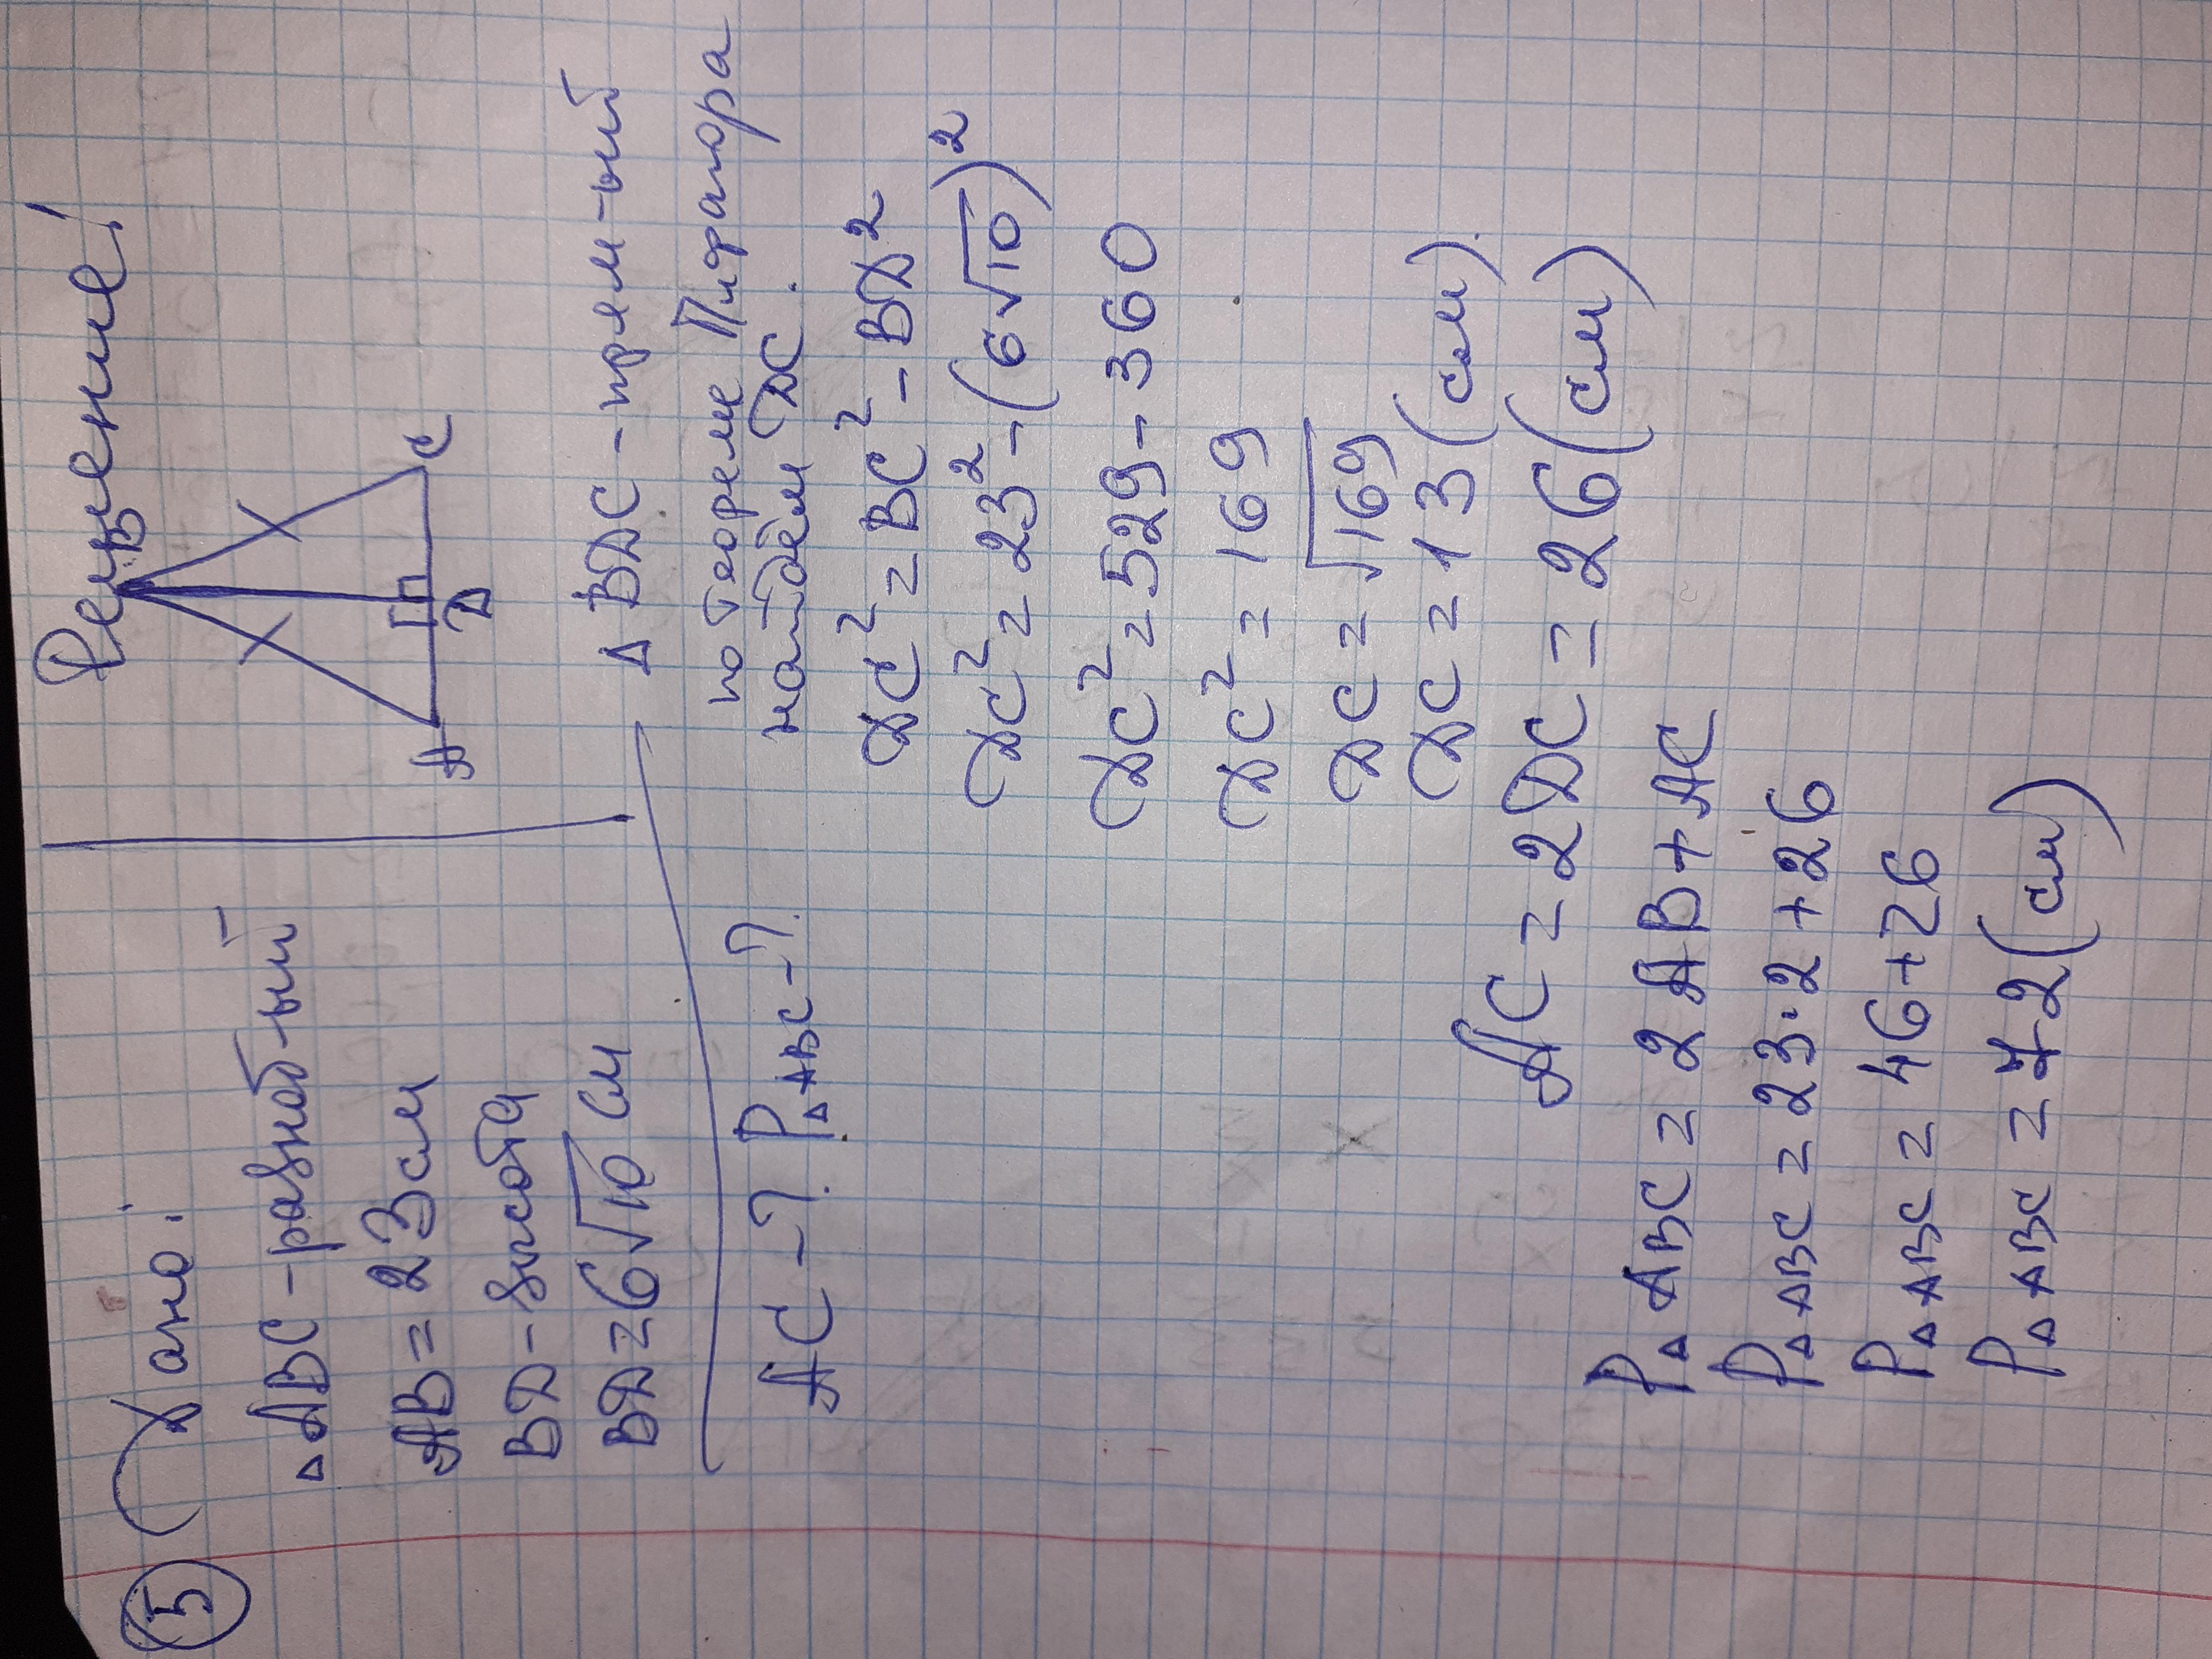 5 Дано: Решение!
△ABC - равноб-ый
AB = 23 см
BД - высота
BД = 6√10 см
AC - ? P△ABC - ?
B
A
Д
C
△ BДC - прям-ый
по теореме Пифагора
найдём ДC.
ДC² = BC² - BД²
ДC² = 23² - (6√10)²
ДC² = 529 - 360
ДC² = 169
ДC = √169
ДC = 13 (см).
AC = 2ДC = 26 (см)
P△ABC = 2AB + AC
P△ABC = 23·2 + 26
P△ABC = 46 + 26
P△ABC = 72 (см)